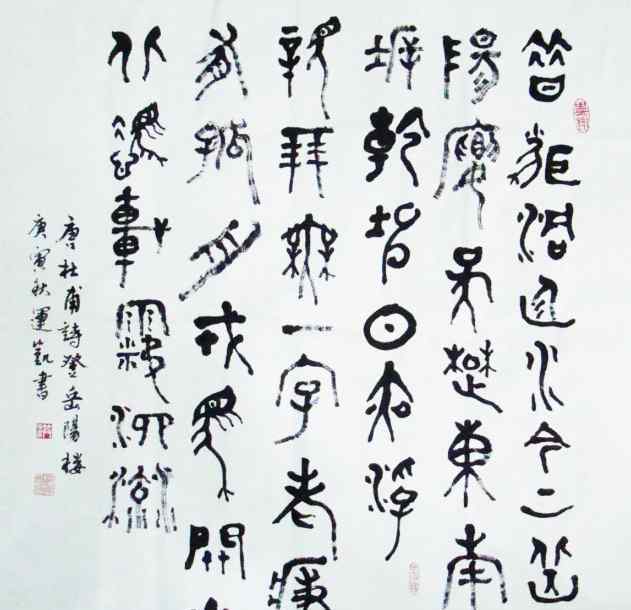 昔聞洞庭水今上岳
陽樓吳楚東南
坼乾坤日夜浮
親朋無一字老病
有孤舟戎馬關
北憑軒涕泗流
唐杜甫詩登岳陽楼
庚寅秋運凱書